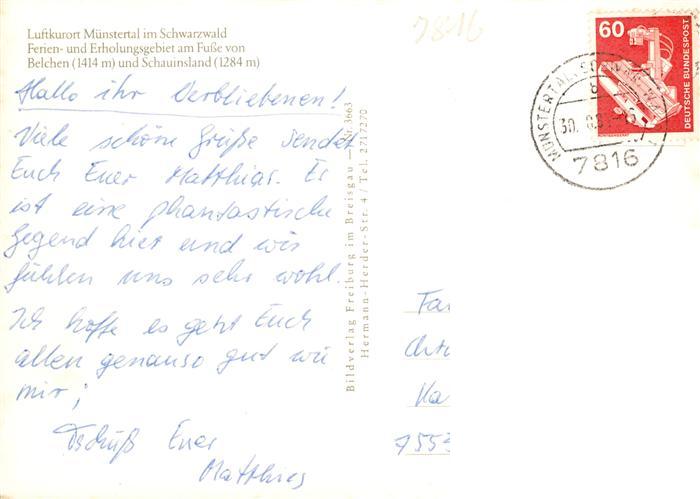 Luftkurort Münstertal im Schwarzwald
Ferien- und Erholungsgebiet am Fuße von
Belchen (1414 m) und Schauinsland (1284 m)
7816
Hallo ihr Verbliebenen!
Viele schöne Grüße sendet
Euch Euer Matthias. Es
ist eine phantastische
Gegend hier und wir
fühlen uns sehr wohl.
Ich hoffe es geht Euch
allen genauso gut wie
mir,
Tschüß Euer
Matthias
Bildverlag Freiburg im Breisgau — Nr. 3663
Hermann-Herder-Str. 4 / Tel. 2717270
60
DEUTSCHE BUNDESPOST
MÜNSTERTAL
b
30.
7816
Fa
Ka
755